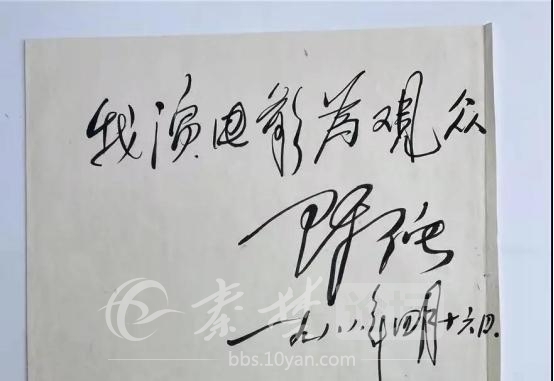 我演电影为观众
陈强
一九八八年四月十六日.
秦楚论坛
bbs.10yan.com